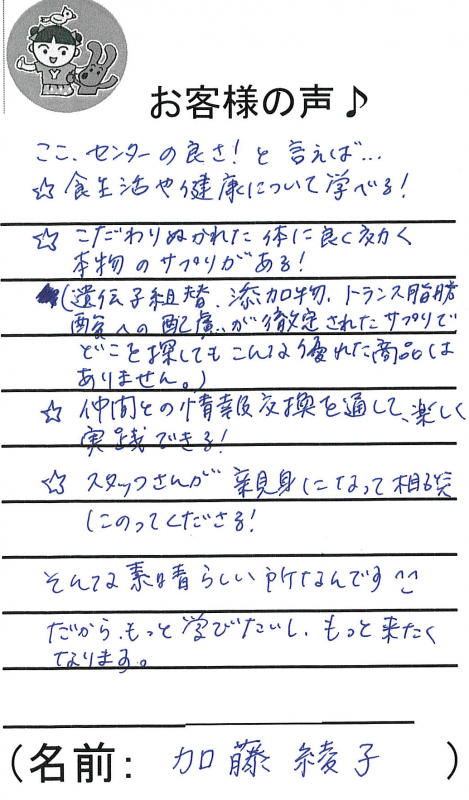 お客様の声♪
ここ、センターの良さ！と言えば…
☆食生活や健康について学べる！
☆こだわりぬかれた体に良く効く
本物のサプリがある！
(遺伝子組替、添加物、トランス脂肪
酸への配慮が徹底されたサプリで
どこを探してもこんな優れた商品は
ありません。)
☆仲間との情報交換を通して、楽しく
実践できる！
☆スタッフさんが親身になって相談
にのってくださる！
そんな素晴らしい所なんです^^
だから、もっと学びたいし、もっと来たく
なります。
(名前：加藤綾子)